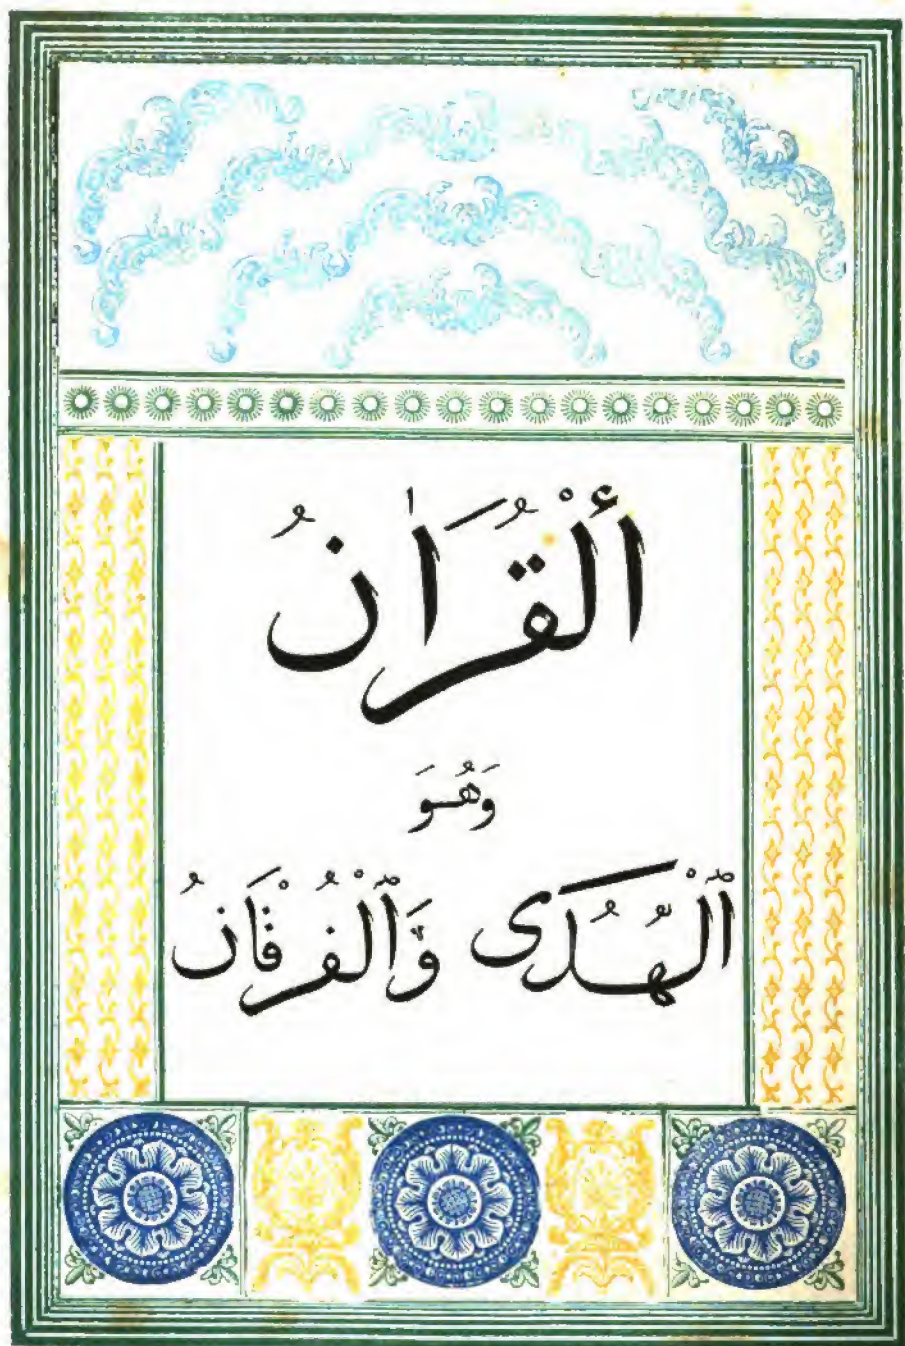 أَلْقُرَاٰنُ
وَهُوَ
اَلْهُدٰى وَالْفُرْقَانُ